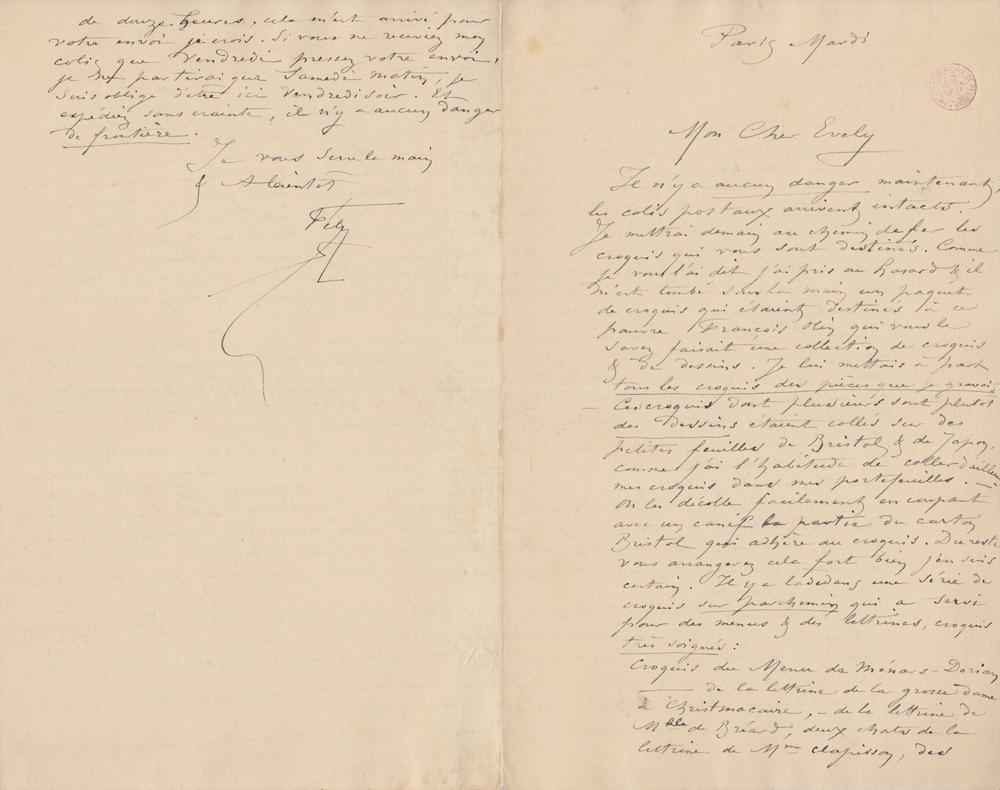 Paris Mardi
Mon Cher Evely
Il n'y a aucun danger maintenant,
les colis postaux arrivent intacts.
Je mettrai demain au chemin de fer les
croquis qui vous sont destinés. Comme
je vous l'ai dit j'ai pris au hasard & il
m'est tombé sous la main un paquet
de croquis qui étaient destinés à ce
pauvre François Olin qui vous le
savez faisait une collection de croquis
& de dessins. Je lui mettais à part
tous les croquis des pièces que je gravais
– Ces croquis dont plusieurs sont plutot
des dessins étaient collés sur des
petites feuilles de Bristol & de Japon,
comme j'ai l'habitude de coller d'ailleurs
mes croquis dans mes portefeuilles. —
On les décolle facilement en coupant
avec un canif la partie du carton
Bristol qui adhère au croquis. Du reste
vous arrangerez cela fort bien j'en suis
certain. Il y a ladedans une série de
croquis sur parchemin qui a servi
pour des menus & des lettrines, croquis
très soignés :
Croquis du Menu de Ménars-Dorian
— de la lettrine de la grosse dame
à Christmacaire, – de la lettrine de
Mlle de Bréard, deux chats de la
lettrine de Mme Clapisson, des
de douze heures, cela m'est arrivé pour
votre envoi je crois. Si vous ne receviez mon
colis que Vendredi pressez votre envoi,
je ne partirai que Samedi matin, je
suis obligé d'être ici Vendredi soir. Et
expédiez sans crainte, il n'y a aucun danger
de frontière.
Je vous serre la main
& A bientôt
Fély